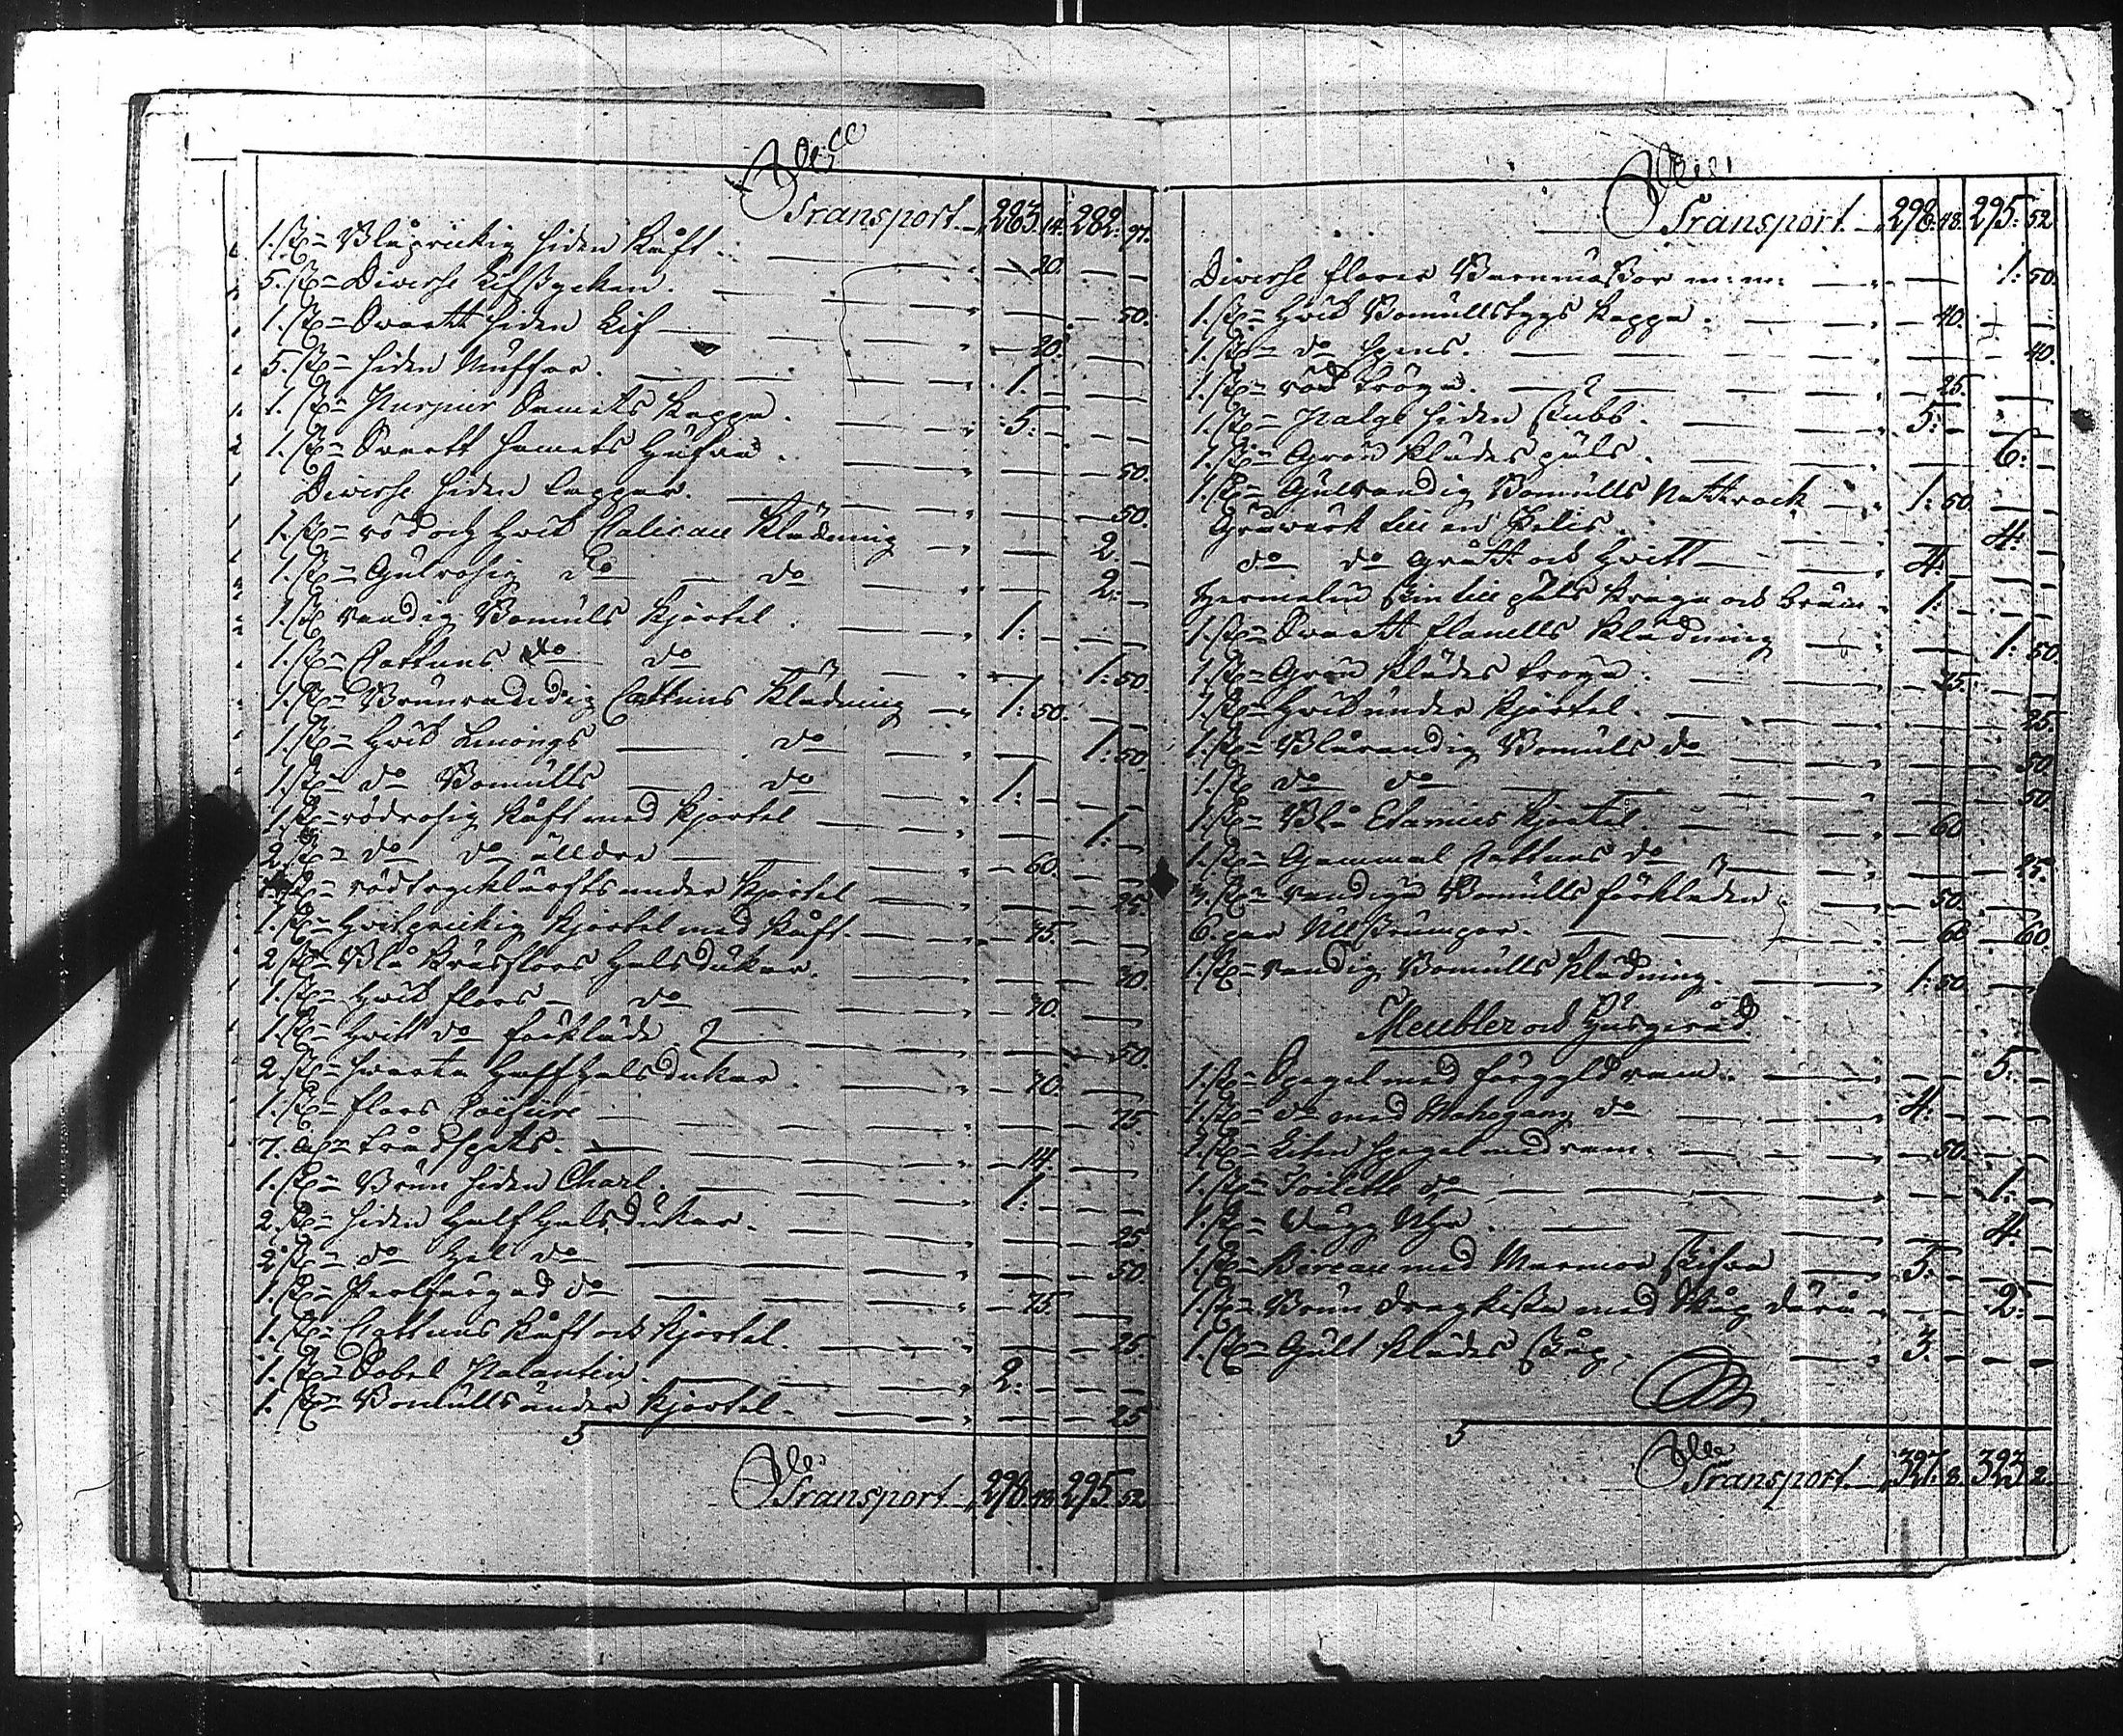 Transport 283. 14. 282. 97.
1. st. Blåprickig siden Kåft 20.
5. st. Diverse Lifstycken 50.
1. st. Swartt siden Lif 20.
5. st. siden Muffar 1.
1. st. Purpur Samets Kappa 5.
1. st. Swartt samets Hufva 50.
Diverse siden lappar 50.
1. st. röd och Hvit Calicau Klädning 2.
1. st. Gulrosig do do 2.
1. st. randig Bomuls Kjortel 1.
1. st. Cattuns do do 1: 50.
1. st. Brunrandig Cattuns Klädning 1: 50.
1. st. Hvit do 1: 50.
1. st. do Bomulls do 1.
1. st. rödrosig Kåft med Kjortel 1.
2. st. do do älldre 60.
st. under Kjortel 25.
1. st. Hvitprickig Kjortel med Kåft 75.
2. st. Blå Halsdukar 30.
1. st. Hvit flors do 30.
1. st. Hvitt do förkläde 50.
2. st. swarta Halfhalsdukar 70.
1. st. flors Coëfure 75.
7. aln trådspets 14.
1. st. Brun siden Charl 1.
2. st. siden Half Halsdukar 25.
2. st. do Hel do 50.
1. st. Perlfärgad do 75.
1. st. Cattuns Kåft och Kjortel 25.
1. st. Sobel Palantin 2.
1. st. Bomullsunder Kjortel 25
Transport 298 48 295 52
Transport 298. 48. 295. 52
Diverse flerer Barnmössor m: m: 1: 50.
1. st. Hvit Bomullstygs Kappa 40.
1. st. do 40.
1. st. röd tröya 25.
1. st. siden stubb 5.
1. st. Grön Klädes päls 6.
1. st. Gulrandig Bomulls Nattrock 1: 50.
Gråwärk till en 4.
do do grått och Hvitt 4.
Hermelin skin till päls Kraga och bräm 1.
1. st. Swartt flanells Klädning 1: 50.
1. st. Grön Klädes tröya 25.
1. st. Hvit under Kjortel 25.
1. st. Blårandig Bomuls do 50
1. st. do do 50.
1. st. Blå Etamies Kjortel 60
1. st. Gammal Cattuns do 25.
3. st. randiga Bomulls förkläden 50.
6. par Ullstrumpor 60 60.
1. st. randig Bomulls Klädning 1: 50.
Meubler och Husgeråd
1. st. Spegel med förgyld ram 5.
1. st. do med Mahogany do 4.
1. st. Liten spegel med ram 50.
1. st. Toilette do 1.
1. st. Vägg Uhr 4.
1. st. Bureau med Marmor skifva 5.
1. st. Brun dragkista med skåp därå 2.
1. st. Gult Klädes skåp 3.
Transport 327. 8. 323. 2.